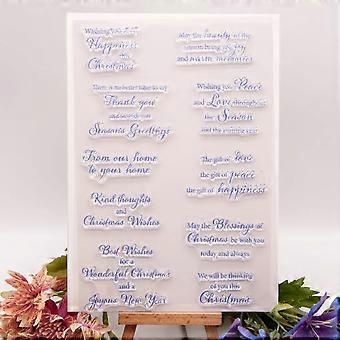 Wishing you
Happiness
this
Christmas
May the beauty of the
season bring you joy
and warm memories
There is no better time to say
Thank you
and to wish you
Season's Greetings
Wishing you Peace
and Love throughout
the Season
and the coming year
From our home
to your home
The gift of love
the gift of peace
the gift of happiness
Kind thoughts
and
Christmas Wishes
May the Blessings of
Christmas be with you
today and always
Best Wishes
for a
Wonderful Christmas
and a
Joyous New Year
We will be thinking
of you this
Christmas